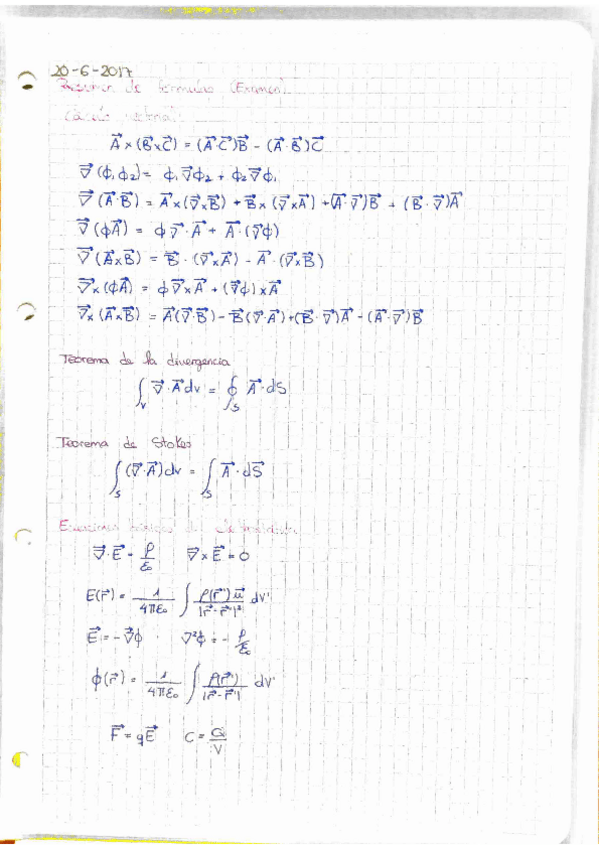 20-6-2017
Resumen de fórmulas (Examen)
Cálculo vectorial:
A⃗ × (B⃗ × C⃗) = (A⃗·C⃗)B⃗ - (A⃗·B⃗)C⃗
∇⃗(ϕ₁ϕ₂) = ϕ₁∇⃗ϕ₂ + ϕ₂∇⃗ϕ₁
∇⃗(A⃗·B⃗) = A⃗×(∇⃗×B⃗) + B⃗×(∇⃗×A⃗) + (A⃗·∇⃗)B⃗ + (B⃗·∇⃗)A⃗
∇⃗(ϕA⃗) = ϕ∇⃗·A⃗ + A⃗·(∇⃗ϕ)
∇⃗(A⃗×B⃗) = B⃗·(∇⃗×A⃗) - A⃗·(∇⃗×B⃗)
∇⃗×(ϕA⃗) = ϕ∇⃗×A⃗ + (∇⃗ϕ)×A⃗
∇⃗×(A⃗×B⃗) = A⃗(∇⃗·B⃗) - B⃗(∇⃗·A⃗) + (B⃗·∇⃗)A⃗ - (A⃗·∇⃗)B⃗
Teorema de la divergencia
∫_V ∇⃗·A⃗ dv = ∮_S A⃗·dS
Teorema de Stokes
∫_S (∇⃗·A⃗)dv = ∫_S A⃗·dS⃗
Ecuaciones
∇⃗·E⃗ = ρ/ε₀ ∇×E⃗ = 0
E(r⃗) = 1/4πε₀ ∫ ρ(r⃗')u⃗/|r⃗-r⃗'|² dv'
E⃗ = -∇⃗ϕ ∇²ϕ = -ρ/ε₀
ϕ(r⃗) = 1/4πε₀ ∫ ρ(r⃗')/|r⃗-r⃗'| dv'
F⃗ = qE⃗ C = Q/V